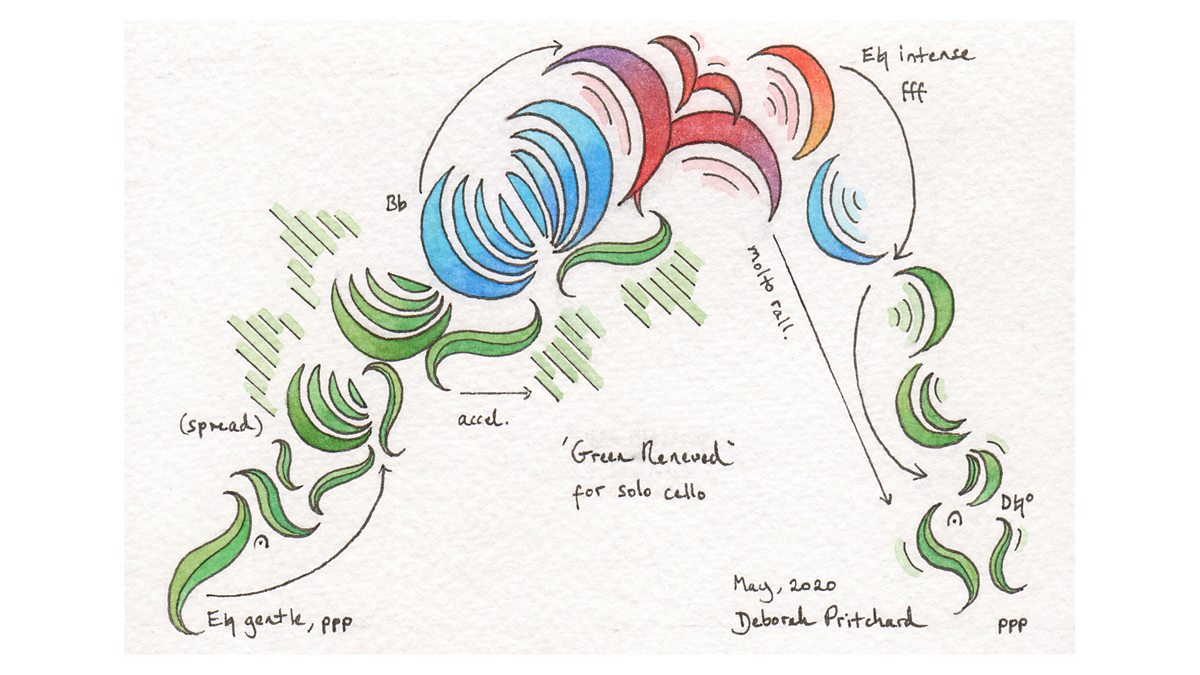 E♮ intense
fff
Bb
molto rall.
(spread)
accel.
'Green Renewed'
for solo cello
D♮°
May, 2020
E♮ gentle, ppp
Deborah Pritchard
ppp